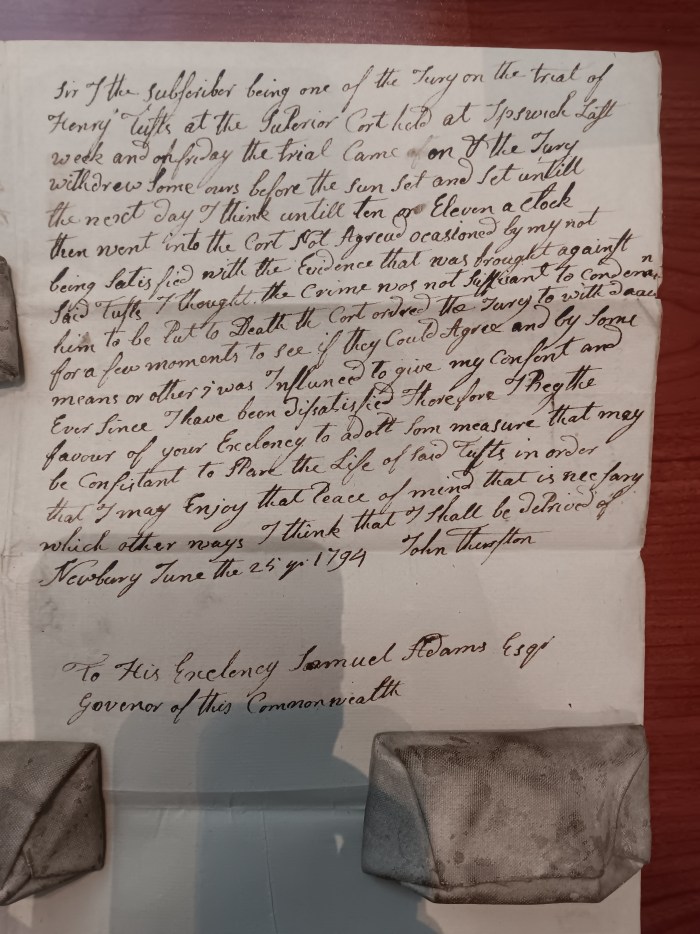 Sir I the subscriber being one of the Jury on the trial of
Henry Tufts at the Superior Cort held at Ipswich Last
week and on friday the trial Came on & the Jury
withdrew Some ours before the sun set and set untill
the next day I think untill ten or Eleven a clock
then went into the Cort Not Agreed ocasioned by my not
being Satisfied with the Evidence that was brought against
Said Tufts I thought the Crime was not Suffisant to Condemn
him to be Put to Death th Cort ordred the Jury to with draw
for a few moments to see if they Could Agree and by Some
means or other i was Influned to give my Consent and
Ever Since I have been Dissatisfied Thorefore I Beg the
favour of your Exclency to adopt Som measure that may
be Consistant to Spare the Life of Said Tufts in order
that I may Enjoy that Peace of mind that is necsary
which other ways I think that I Shall be deprived of
Newbury June the 25 1794 John Thurston
To His Exclency Samuel Adams Esqr
Govenor of this Commonwealth